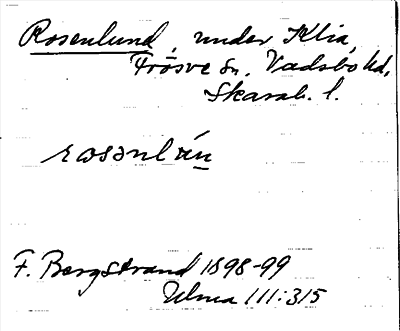 Rosenlund, under Klia,
Frösve sn, Vadsbo hd,
Skarab. l.
F. Bergstrand 1898-99
Ulma 111:315